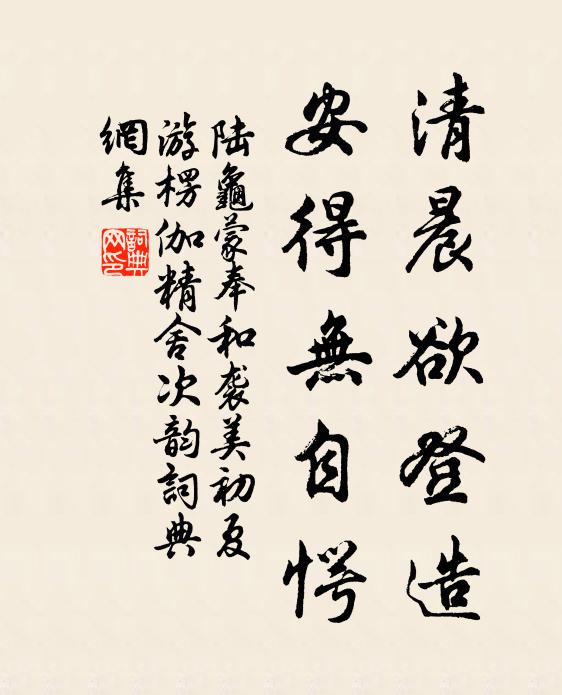 清晨欲登造
安得無自愕
陆龜蒙奉和袭美初夏
游楞伽精舍次韵詞典
網集
詞典
网印